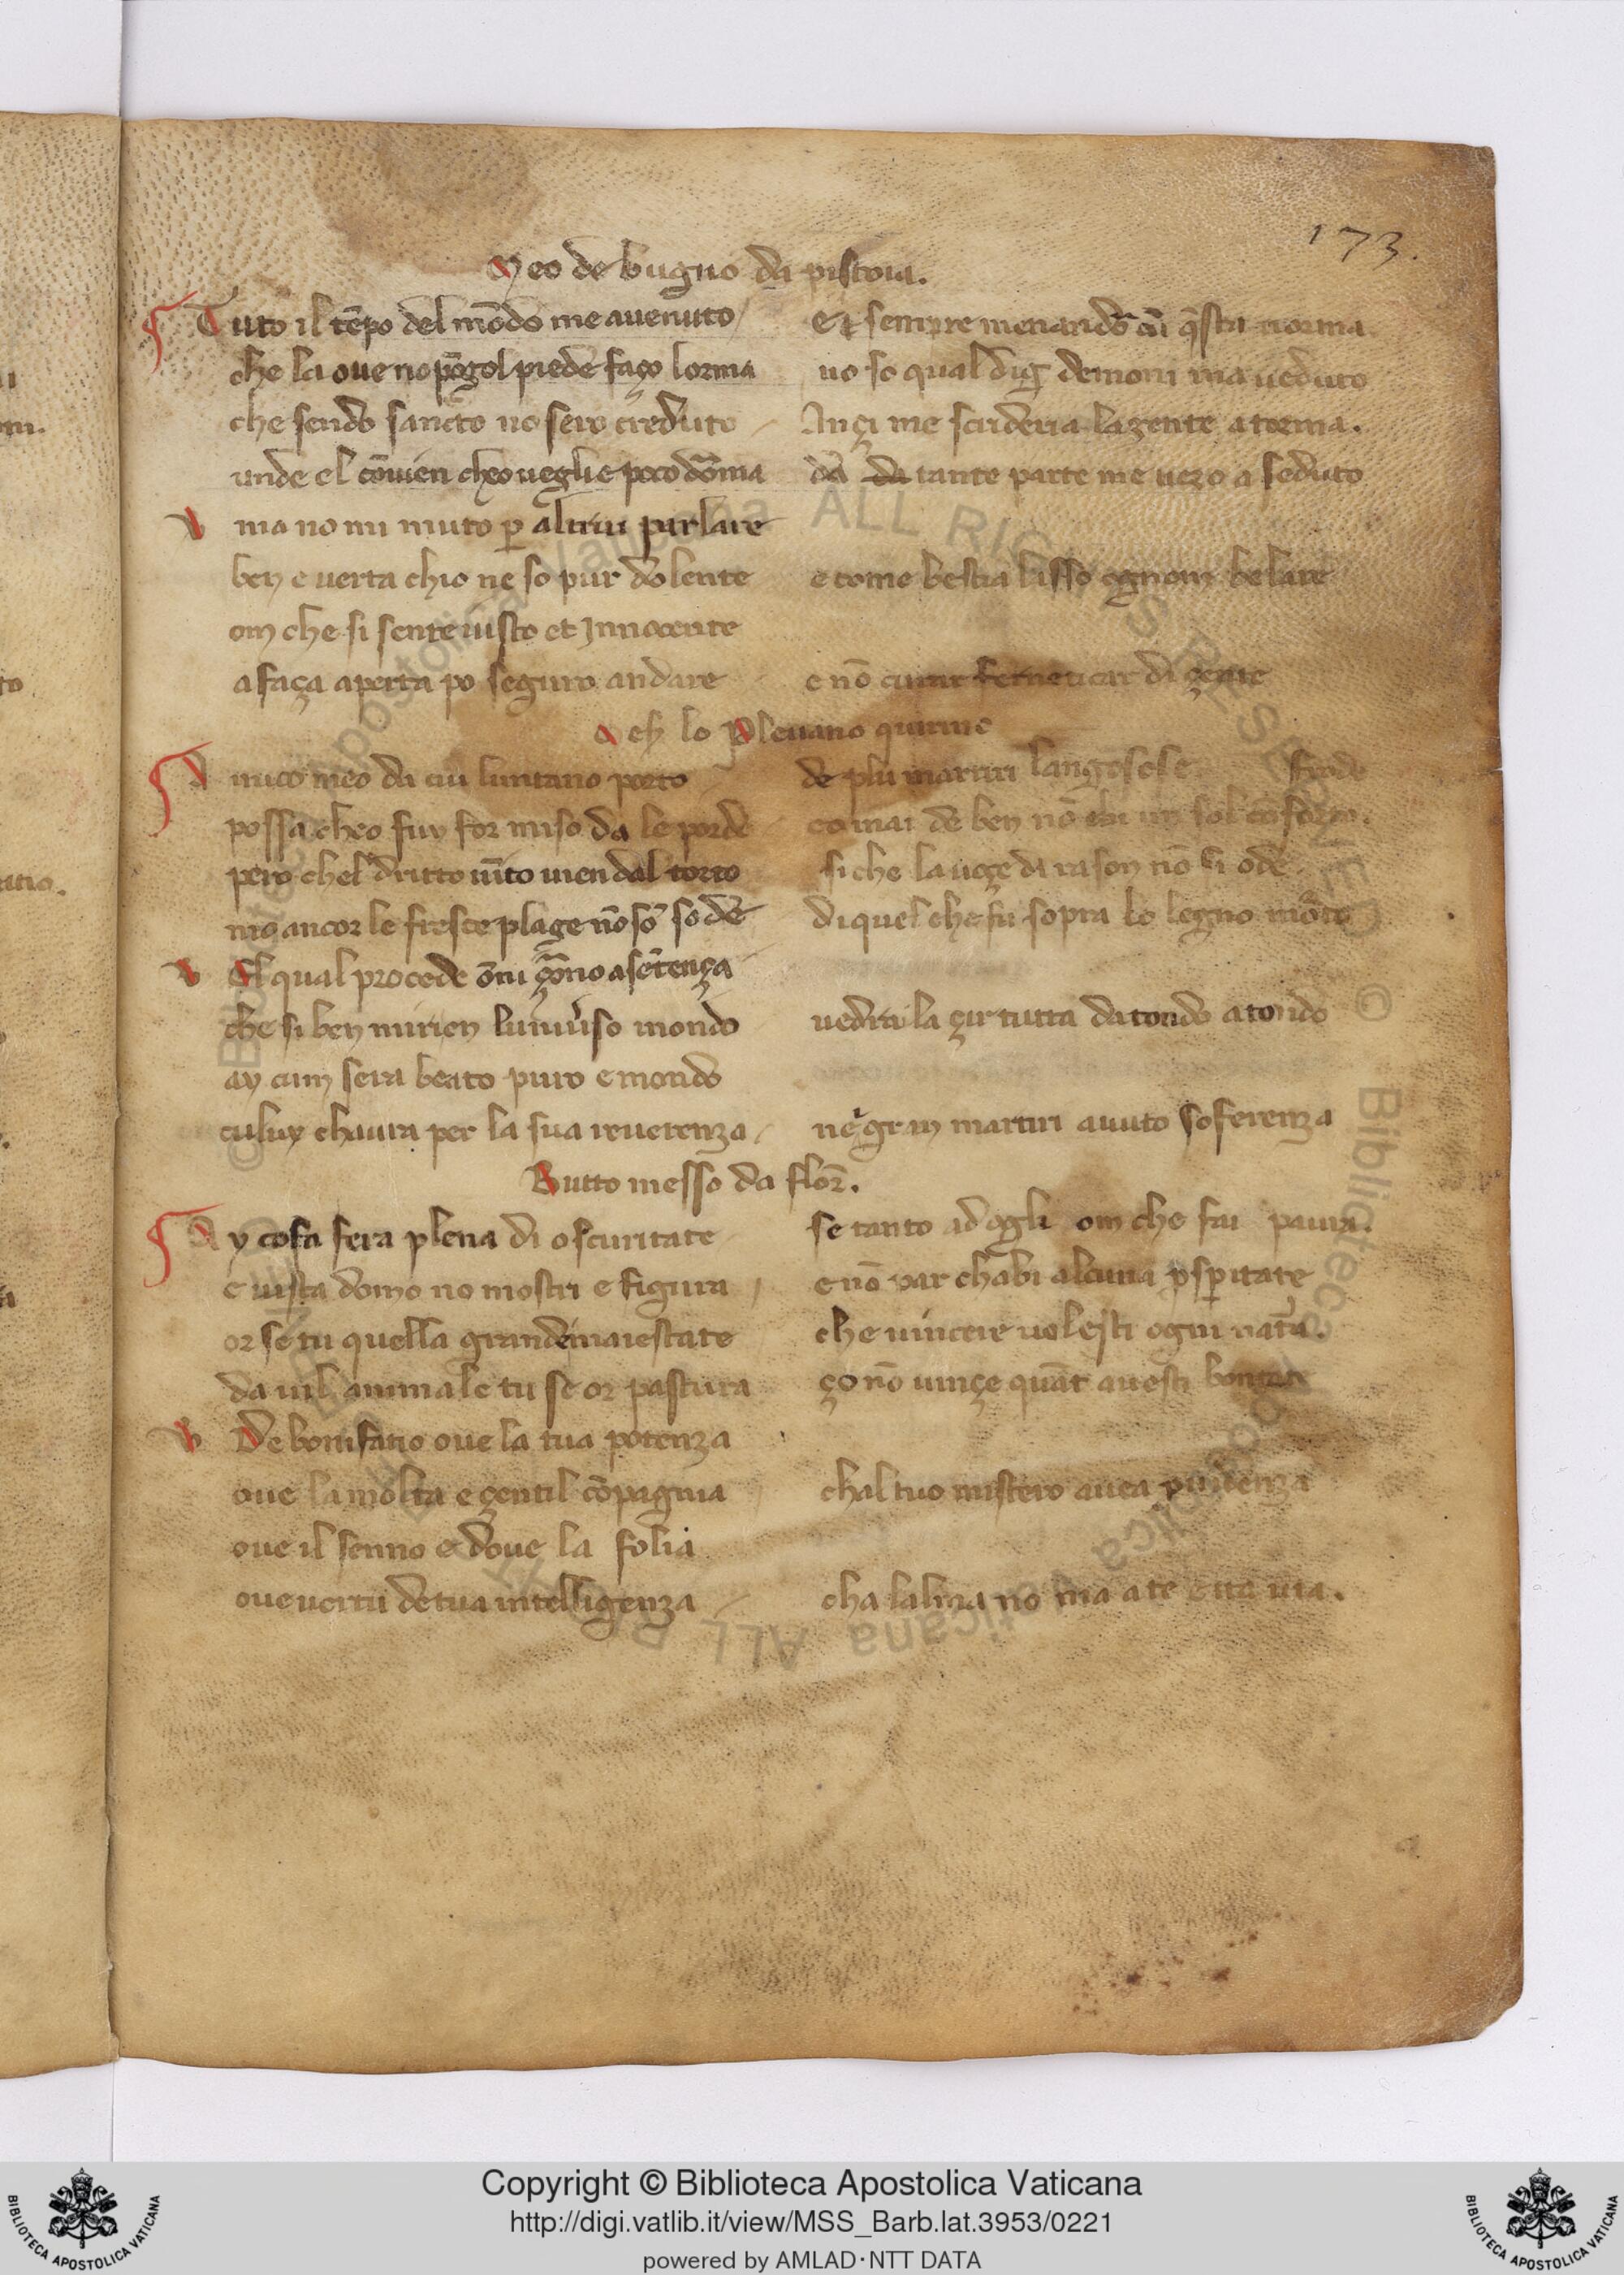 173.
Meo de bugno da pistoia.
Tuto il tēpo del mōdo me auenuto / et sempre menando cū q̄sta norma
che la oue no pōgol piede faço lorma uo so qual dig demoni ma ueduto
che sendo sancto no sero creduto / Ançi me scrideria la gente a torma.
unde el cōuien cheo ueglie poco dorma da da tante parte me uezo aseduto
ma no mi muto ꝑ altrui parlare
ben e uerta chio ne so pur dolente e come bestia lasso ognom belare
om che si sente iusto et Innocente
a faça aperta po seguro andare e nō curar ferneticar di gente
lo Pleuano quirine
mico meo da cui luntano porto de plu martiri langososе frode
possa cheo fuy for miso da le porde co mai de ben nō un sol cōforto.
pero chel dritto uīto uen dal torto si che la uoçe di rason nō si ode
mo ancor le fresce plage nō sō sode di quel che fu sopra lo legno morto
El qual procede ōni çorno a sētença
che si ben mirien luniuerso mondo uedra la çir tutta da tondo a tondo
ay cum sera beato puro e mondo
culuy chaura per la sua reuerenza / ne gran martiri auuto soferenza
Butto messo da flor̄.
Ay cosa fera plena di oscuritate se tanto ad ogli om che fai paura.
e uista domo no mostri e figura / e nō par chabi alcuna ꝓsperitate
or se tu quella grande maiestate che uincere uolesti ogni natura.
da uil animale tu se or pastura ço nō uinçe quāt auesti bontate
De bonifatio oue la tua potenza
oue la molta e gentil cōpagnia chal tuo mistero auea prudenza
oue il senno e doue la folia
oue uertu de tua intelligenza / cha lalma no ma a te uia.
Copyright © Biblioteca Apostolica Vaticana
http://digi.vatlib.it/view/MSS_Barb.lat.3953/0221
powered by AMLAD·NTT DATA
BIBLIOTECA APOSTOLICA VATICANA
BIBLIOTECA APOSTOLICA VATICANA